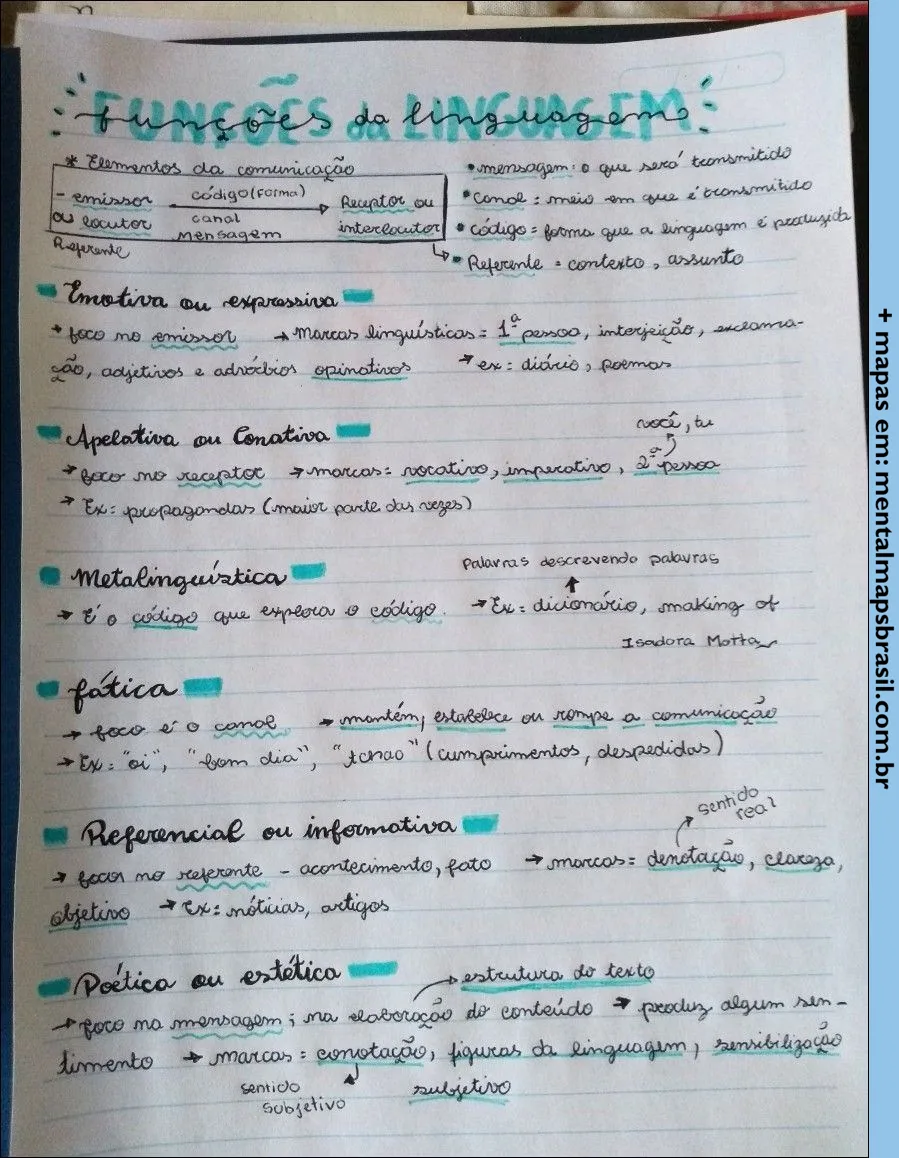 Funções da linguagem
* Elementos da comunicação
- emissor código (forma) Receptor ou
ou locutor canal interlocutor
mensagem
Referente
• mensagem: o que será transmitido
• Canal: meio em que é transmitido
• código = forma que a linguagem é produzida
• Referente = contexto, assunto
Emotiva ou expressiva
→ foco no emissor → Marcas linguísticas = 1ª pessoa, interjeição, exclama-
ção, adjetivos e advérbios opinativos → ex: diário, poemas
Apelativa ou Conativa
você, tu
→ foco no receptor → marcas: vocativo, imperativo, 2ª pessoa
→ Ex: propagandas (maior parte das vezes)
Metalinguística
Palavras descrevendo palavras
→ É o código que explora o código. → Ex: dicionário, making of
Isadora Motta
fática
→ foco é o canal → mantém, estabelece ou rompe a comunicação
→ Ex: "oi", "bom dia", "tchao" (cumprimentos, despedidas)
Referencial ou informativa
sentido
real
→ focar no referente - acontecimento, fato → marcas: denotação, clareza,
objetivo → Ex: nóticias, artigos
Poética ou estética
estrutura do texto
→ foco na mensagem; na elaboração do conteúdo → produz algum sen-
timento → marcas: conotação, figuras da linguagem, sensibilização
sentido
subjetivo
subjetivo
+ mapas em: mentalmapsbrasil.com.br